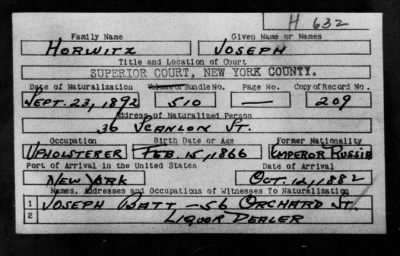 H 632
Family Name Given Name or Names
HORWITZ JOSEPH
Title and Location of Court
SUPERIOR COURT, NEW YORK COUNTY.
Date of Naturalization Volume or Bundle No. Page No. Copy of Record No.
SEPT. 23, 1892 510 — 209
Address of Naturalized Person
36 SCANLON ST.
Occupation Birth Date or Age Former Nationality
UPHOLSTERER FEB. 15, 1866 EMPEROR RUSSIA
Port of Arrival in the United States Date of Arrival
NEW YORK OCT. 12, 1882
Names, Addresses and Occupations of Witnesses To Naturalization
1 JOSEPH WATT — 56 ORCHARD ST.
2 LIQUOR DEALER